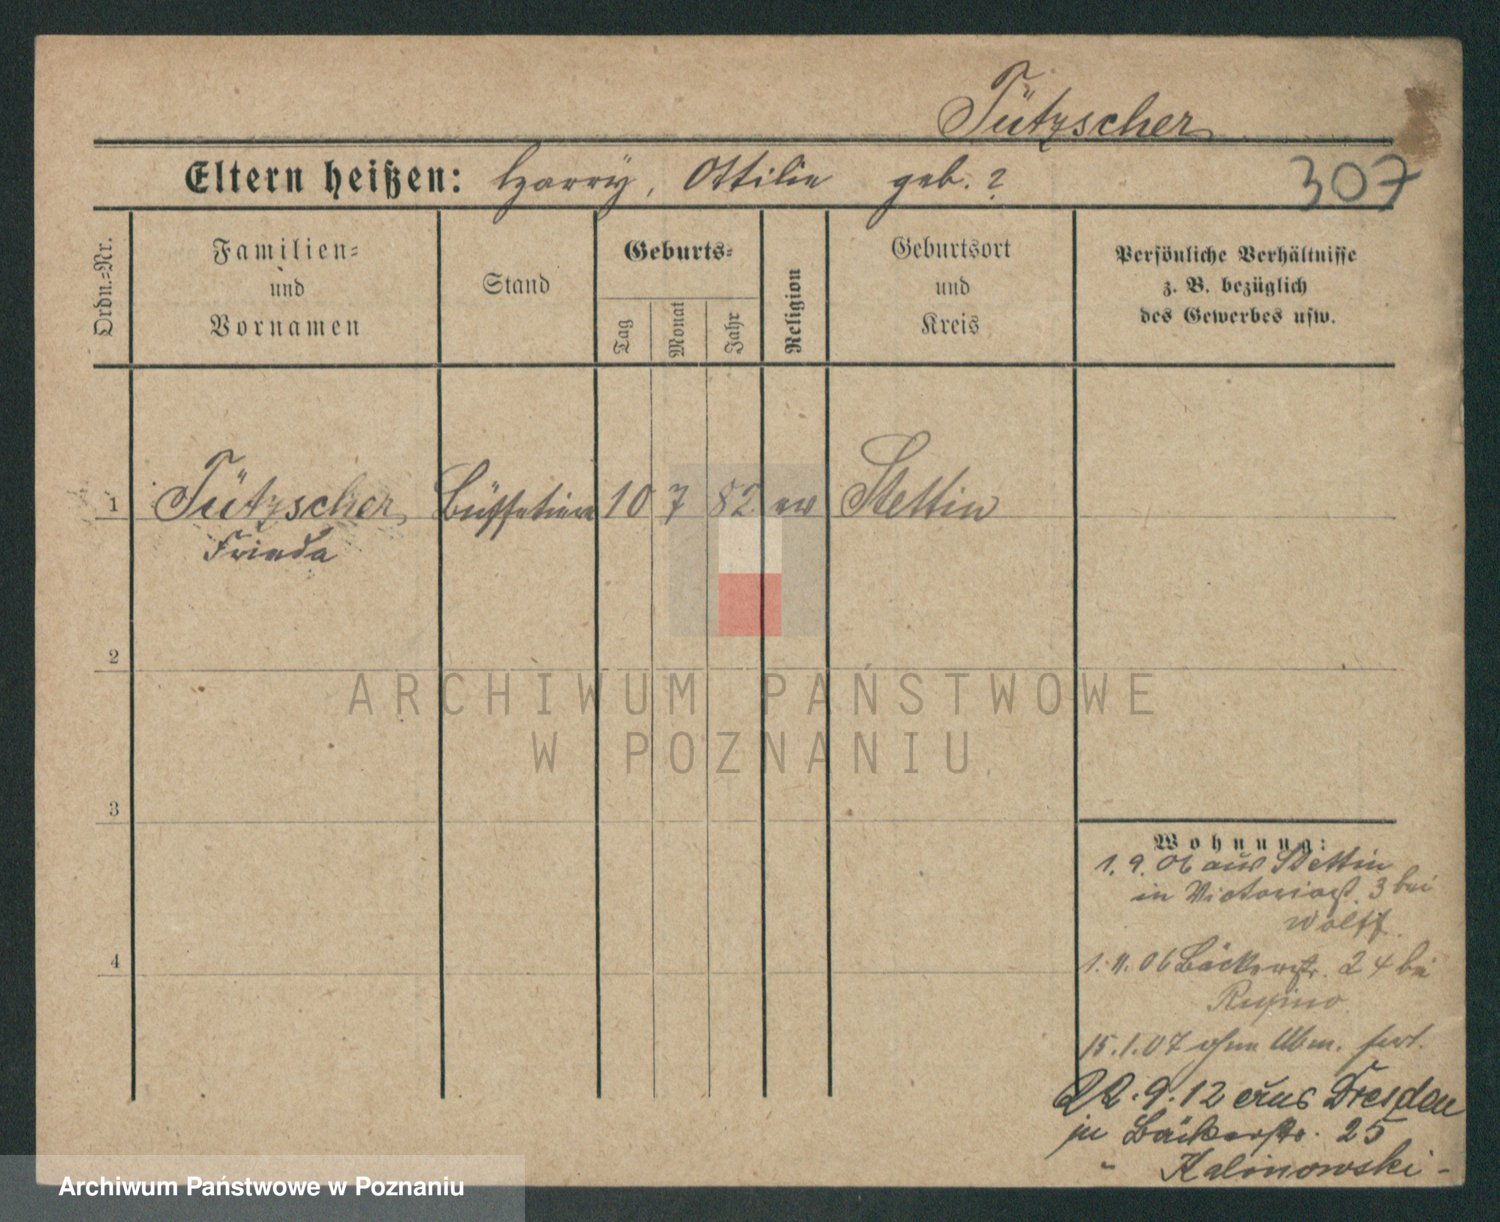 Tützscher
Eltern heißen: Harry, Ottilie geb. ?
307
Ordn.-Nr.
Familien-
und
Vornamen
Stand
Geburts-
Tag
Monat
Jahr
Religion
Geburtsort
und
Kreis
Persönliche Verhältnisse
z. B. bezüglich
des Gewerbes usw.
1 Tützscher Büffetiere 10 7 82 ev Stettin
Frieda
2
ARCHIWUM PAŃSTWOWE
W POZNANIU
3
Wohnung:
1.9.06 aus Stettin
in Victoriast. 3 bei
Wolff.
4
1.11.06 Bäckerstr. 24 bei
15.1.07 ohne Abm. fort.
22.9.12 aus Dresden
in Bäckerstr. 25
" Kalinowski -
Archiwum Państwowe w Poznaniu